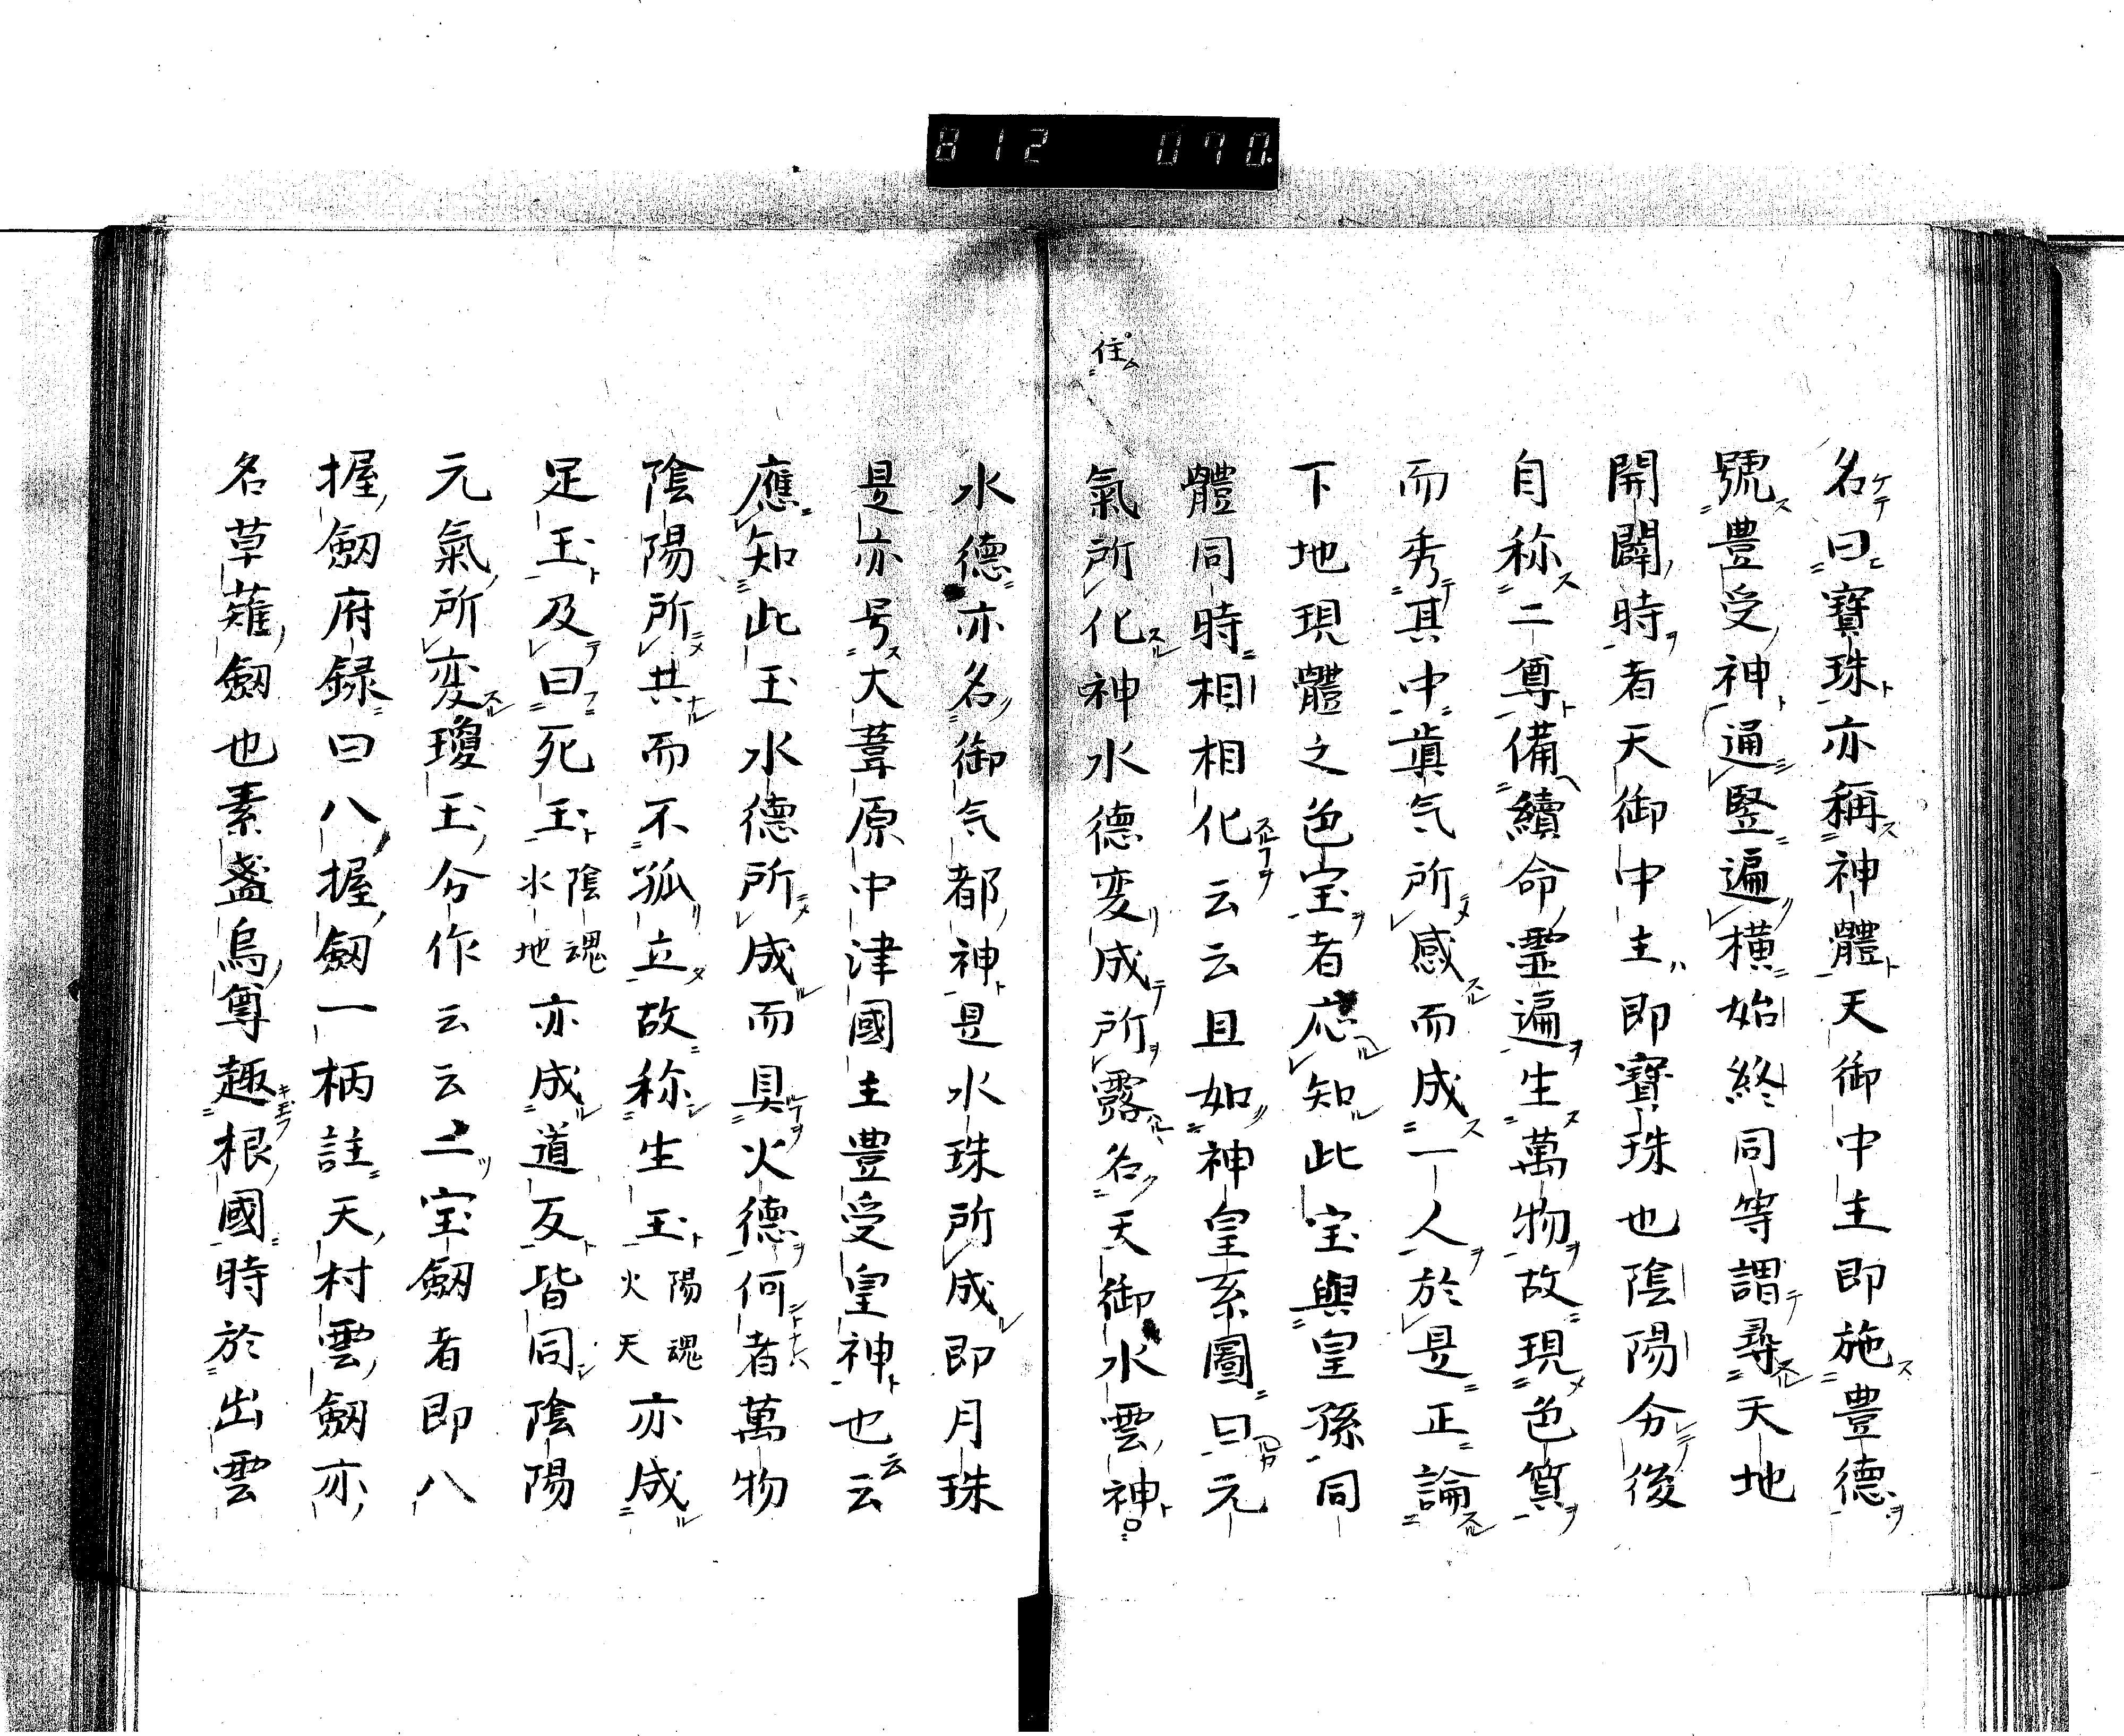 812 070.
名曰寶珠亦稱神體天御中主即施豊德
號豊受神通竪遍横始終同等謂尋天地
開闢時者天御中主即寶珠也陰陽分後
自称二尊備續命霊遍生萬物故現色質
而秀其中眞气所感而成一人於是正論
下地現體之色宝者応知此宝與皇孫同
體同時相相化云云且如神皇系圖曰元
住
氣所化神水德変成所露名天御水雲神
水德亦名御气都神是水珠所成即月珠
是亦号大葦原中津國主豊受皇神也云云
應知此玉水德所成而具火德何者萬物
陰陽所共而不孤立故称生玉陽魂火天亦成
足玉及曰死玉陰魂水地亦成道反皆同陰陽
元氣所変瓊玉分作云云二宝劔者即八
握劔府録曰八握劔一柄註天村雲劔亦
名草薙劔也素盞烏尊趣根國時於出雲